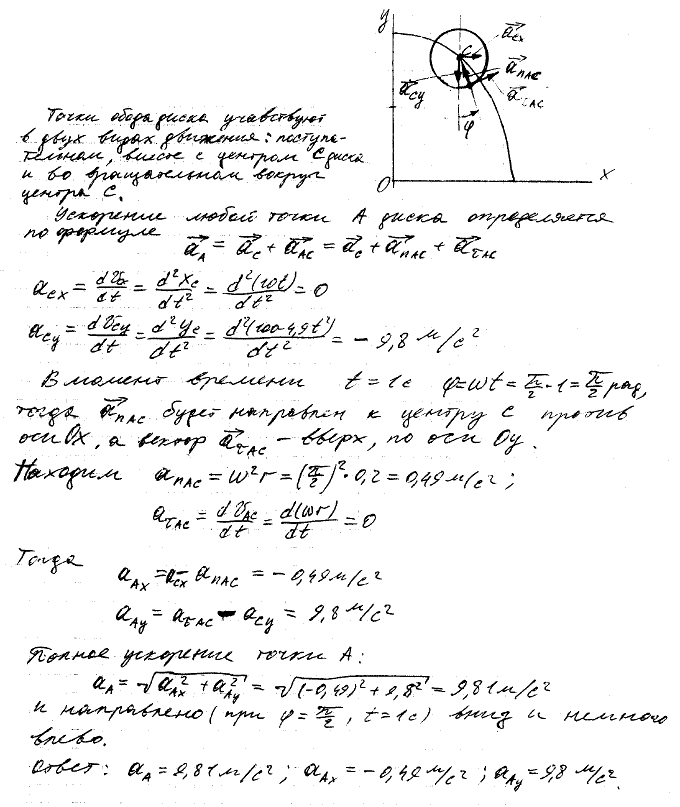 y
C
a⃗cx
a⃗nAC
a⃗τAC
a⃗cy
φ
O
x
Точки обода диска участвуют
в двух видах движения: поступа-
тельном, вместе с центром C диска
и во вращательном вокруг
центра C.
Ускорение любой точки A диска определяется
по формуле a⃗A = a⃗c + a⃗AC = a⃗c + a⃗nAC + a⃗τAC
acx = dvx/dt = d²xc/dt² = d²(10t)/dt² = 0
acy = dvcy/dt = d²yc/dt² = d²(100-4,9t²)/dt² = - 9,8 м/с²
В момент времени t = 1c φ=ωt = π/2·1 = π/2 рад,
тогда a⃗nAC будет направлен к центру C против
оси Ox, а вектор a⃗τAC – вверх, по оси Oy.
Находим anAC = ω²r = (π/2)²·0,2 = 0,49 м/с²;
aτAC = dvAC/dt = d(ωr)/dt = 0
Тогда
aAx = acx - anAC = - 0,49 м/с²
aAy = aτAC - acy = 9,8 м/с²
Полное ускорение точки A:
aA = √(aAx² + aAy²) = √((-0,49)² + 9,8²) = 9,81 м/с²
и направлено (при φ = π/2, t=1c) вниз и немного
влево.
Ответ: aA = 9,81 м/с²; aAx = - 0,49 м/с²; aAy = 9,8 м/с².